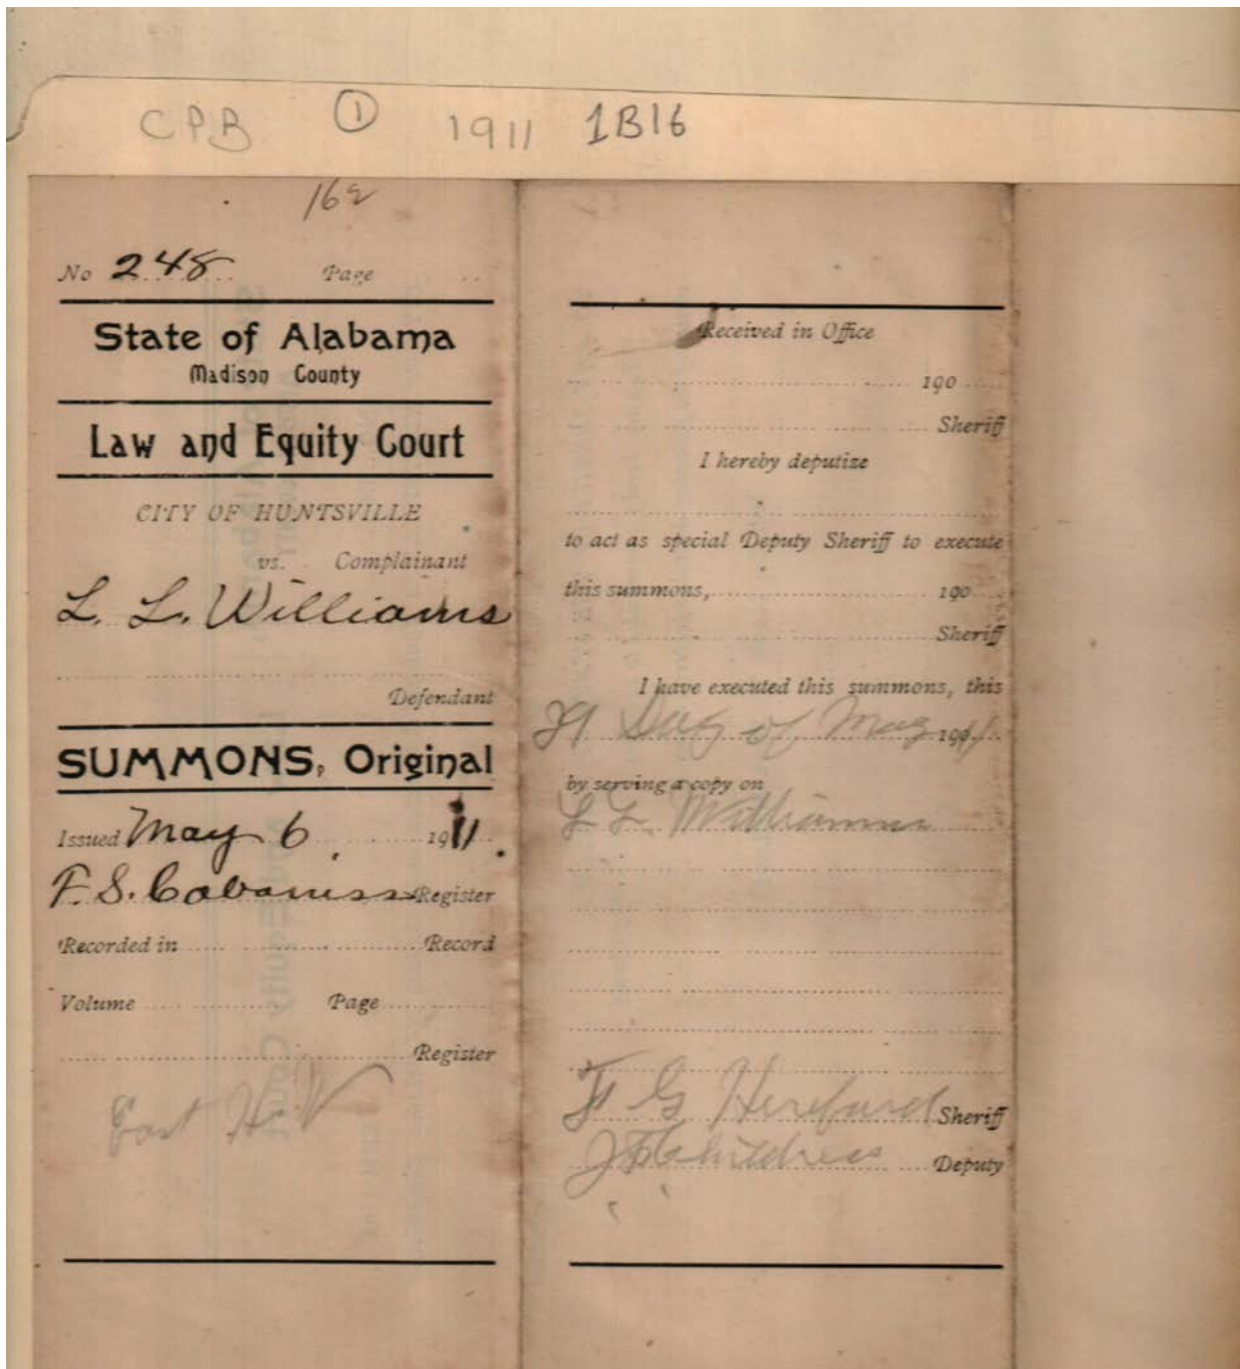 CPB ① 1911 1B16
162
No 248 Page
State of Alabama
Madison County
Law and Equity Court
CITY OF HUNTSVILLE
vs. Complainant
L. L. Williams
Defendant
SUMMONS, Original
Issued May 6 1911.
F. S. Cabaniss Register
Recorded in Record
Volume Page
Register
East
Received in Office
190
Sheriff
I hereby deputise
to act as special Deputy Sheriff to execute
this summons, 190
Sheriff
I have executed this summons, this
Day of May 1911
by serving a copy on
L L Williams
F G Hereford Sheriff
Childress Deputy